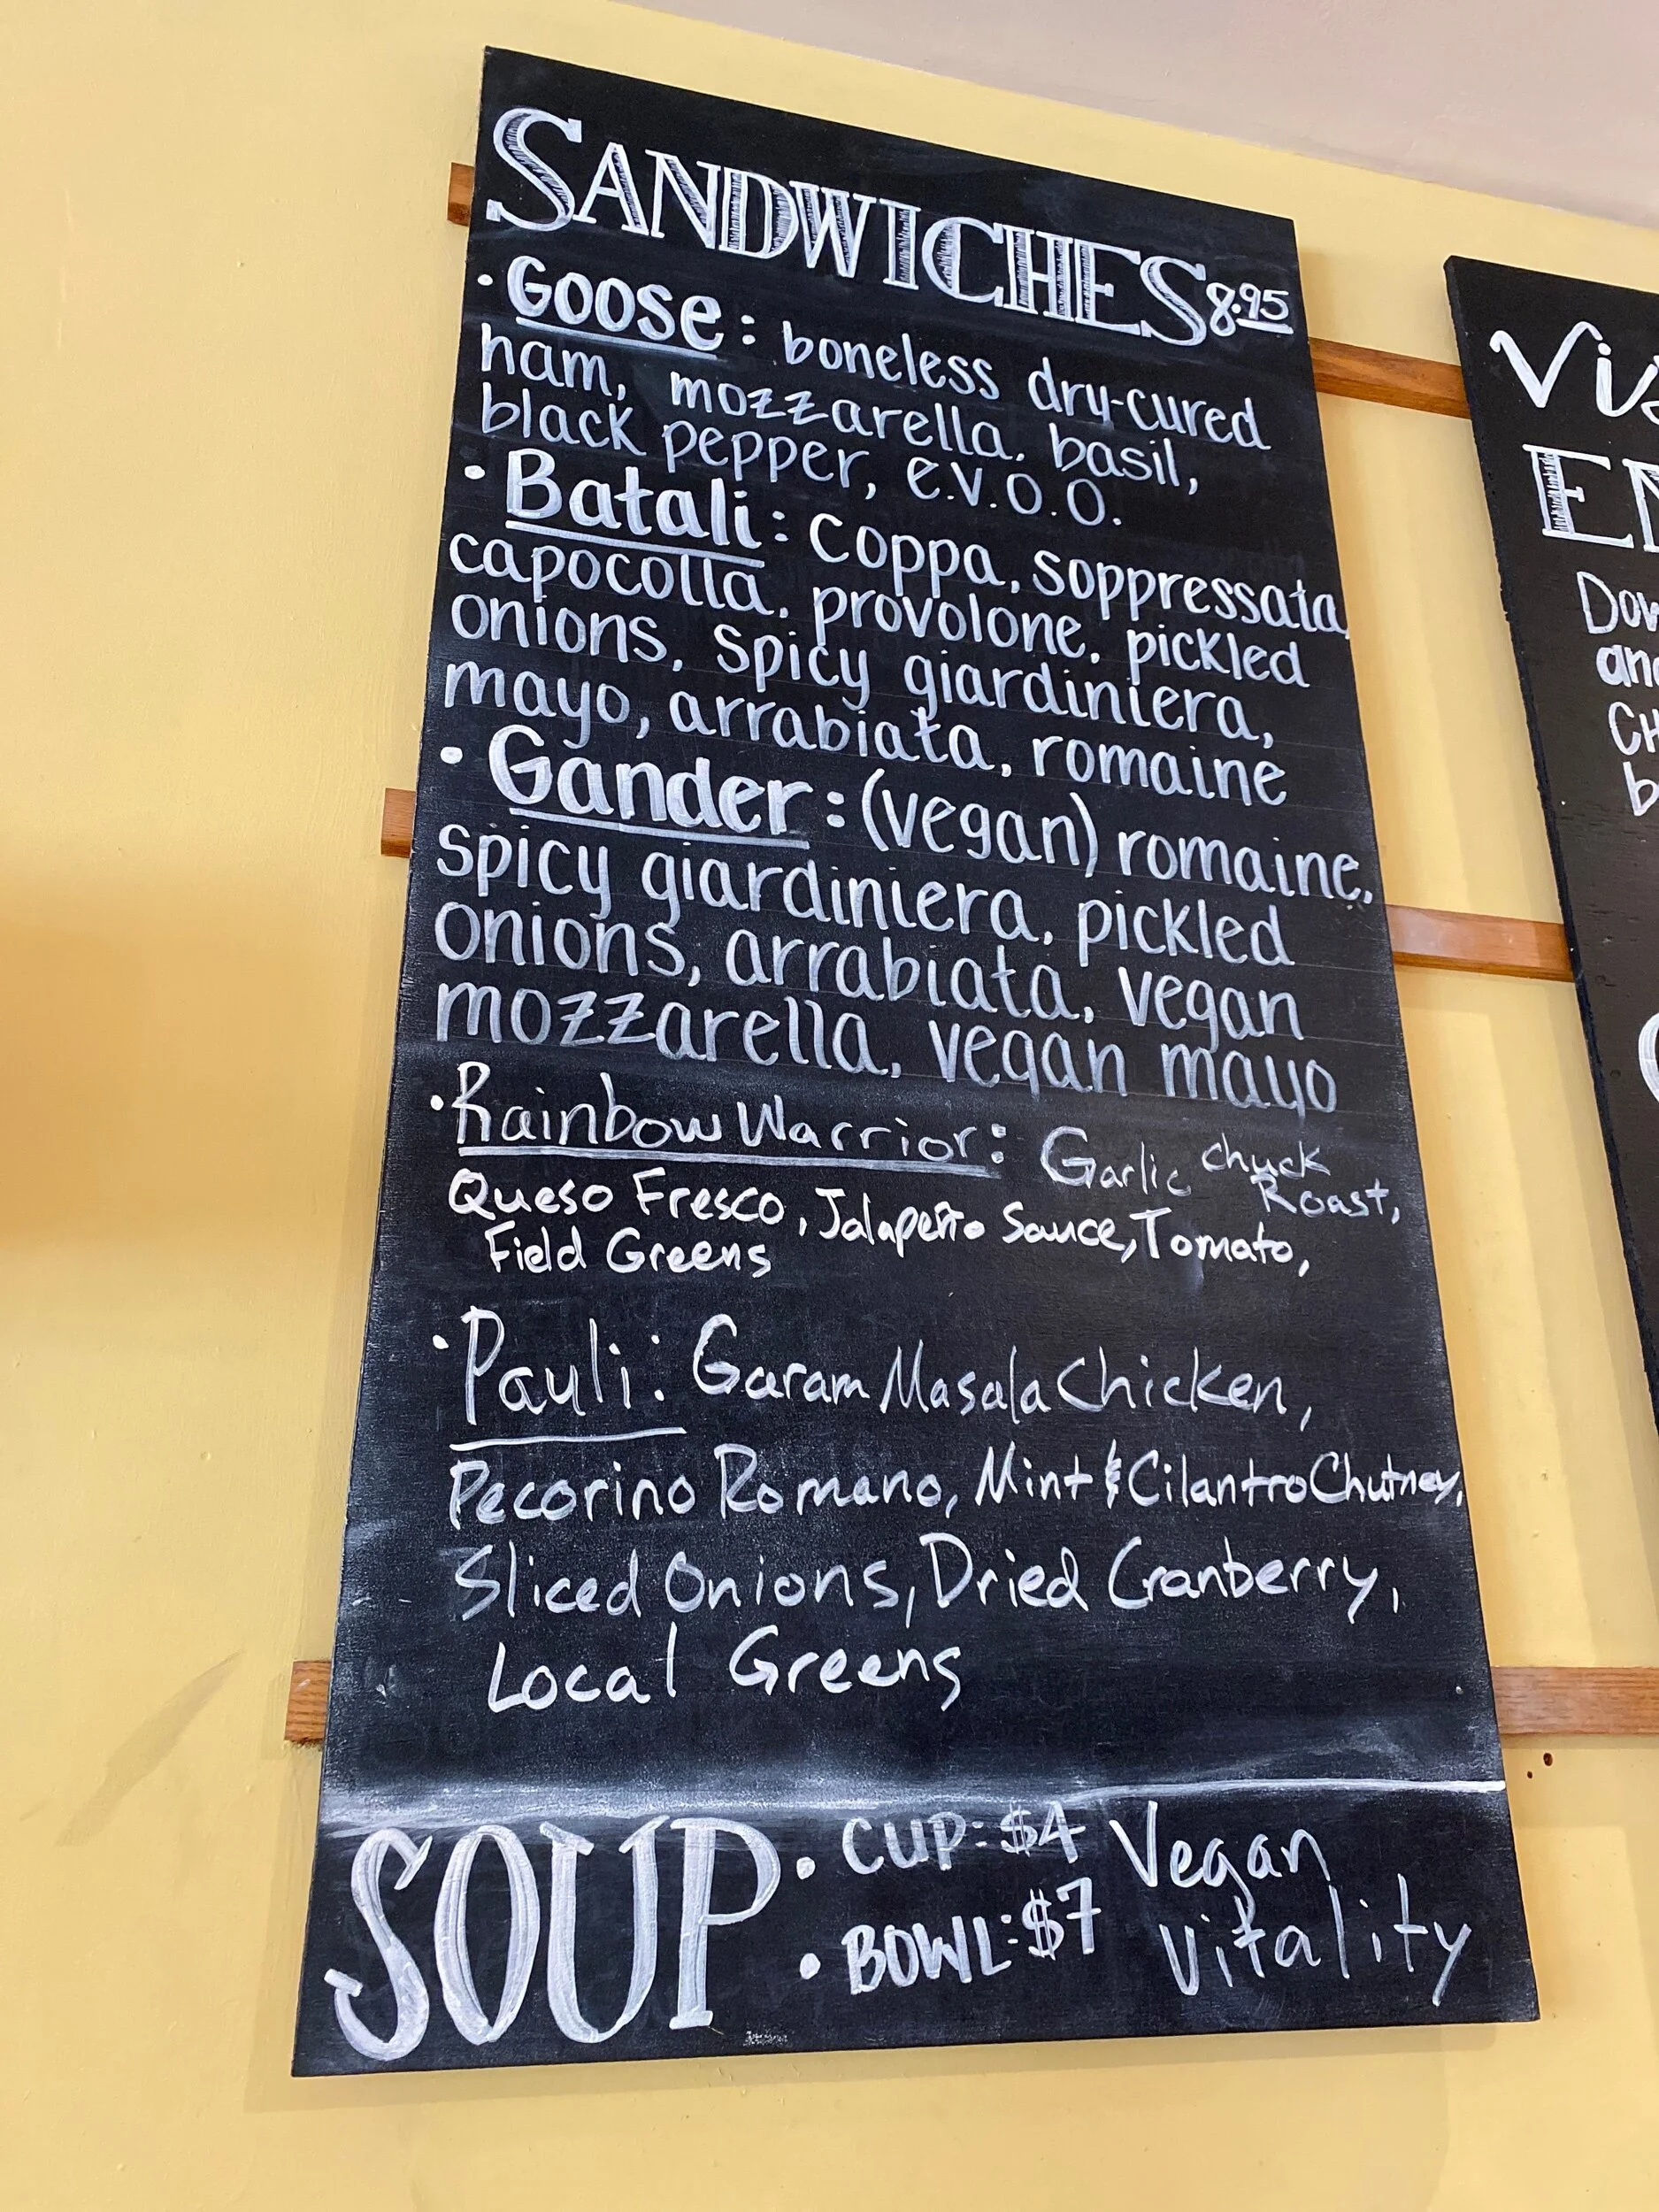 SANDWICHES 8.95
• Goose: boneless dry-cured
ham, mozzarella, basil,
black pepper, e.v.o.o.
• Batali: coppa, soppressata,
capocolla, provolone, pickled
onions, spicy giardiniera,
mayo, arrabiata, romaine
• Gander: (vegan) romaine,
spicy giardiniera, pickled
onions, arrabiata, vegan
mozzarella, vegan mayo
• Rainbow Warrior: Garlic chuck
Roast,
Queso Fresco, Jalapeño Sauce, Tomato,
Field Greens
• Pauli: Garam Masala Chicken,
Pecorino Romano, Mint & Cilantro Chutney,
Sliced Onions, Dried Cranberry,
Local Greens
SOUP • CUP: $4 Vegan
• BOWL: $7 Vitality